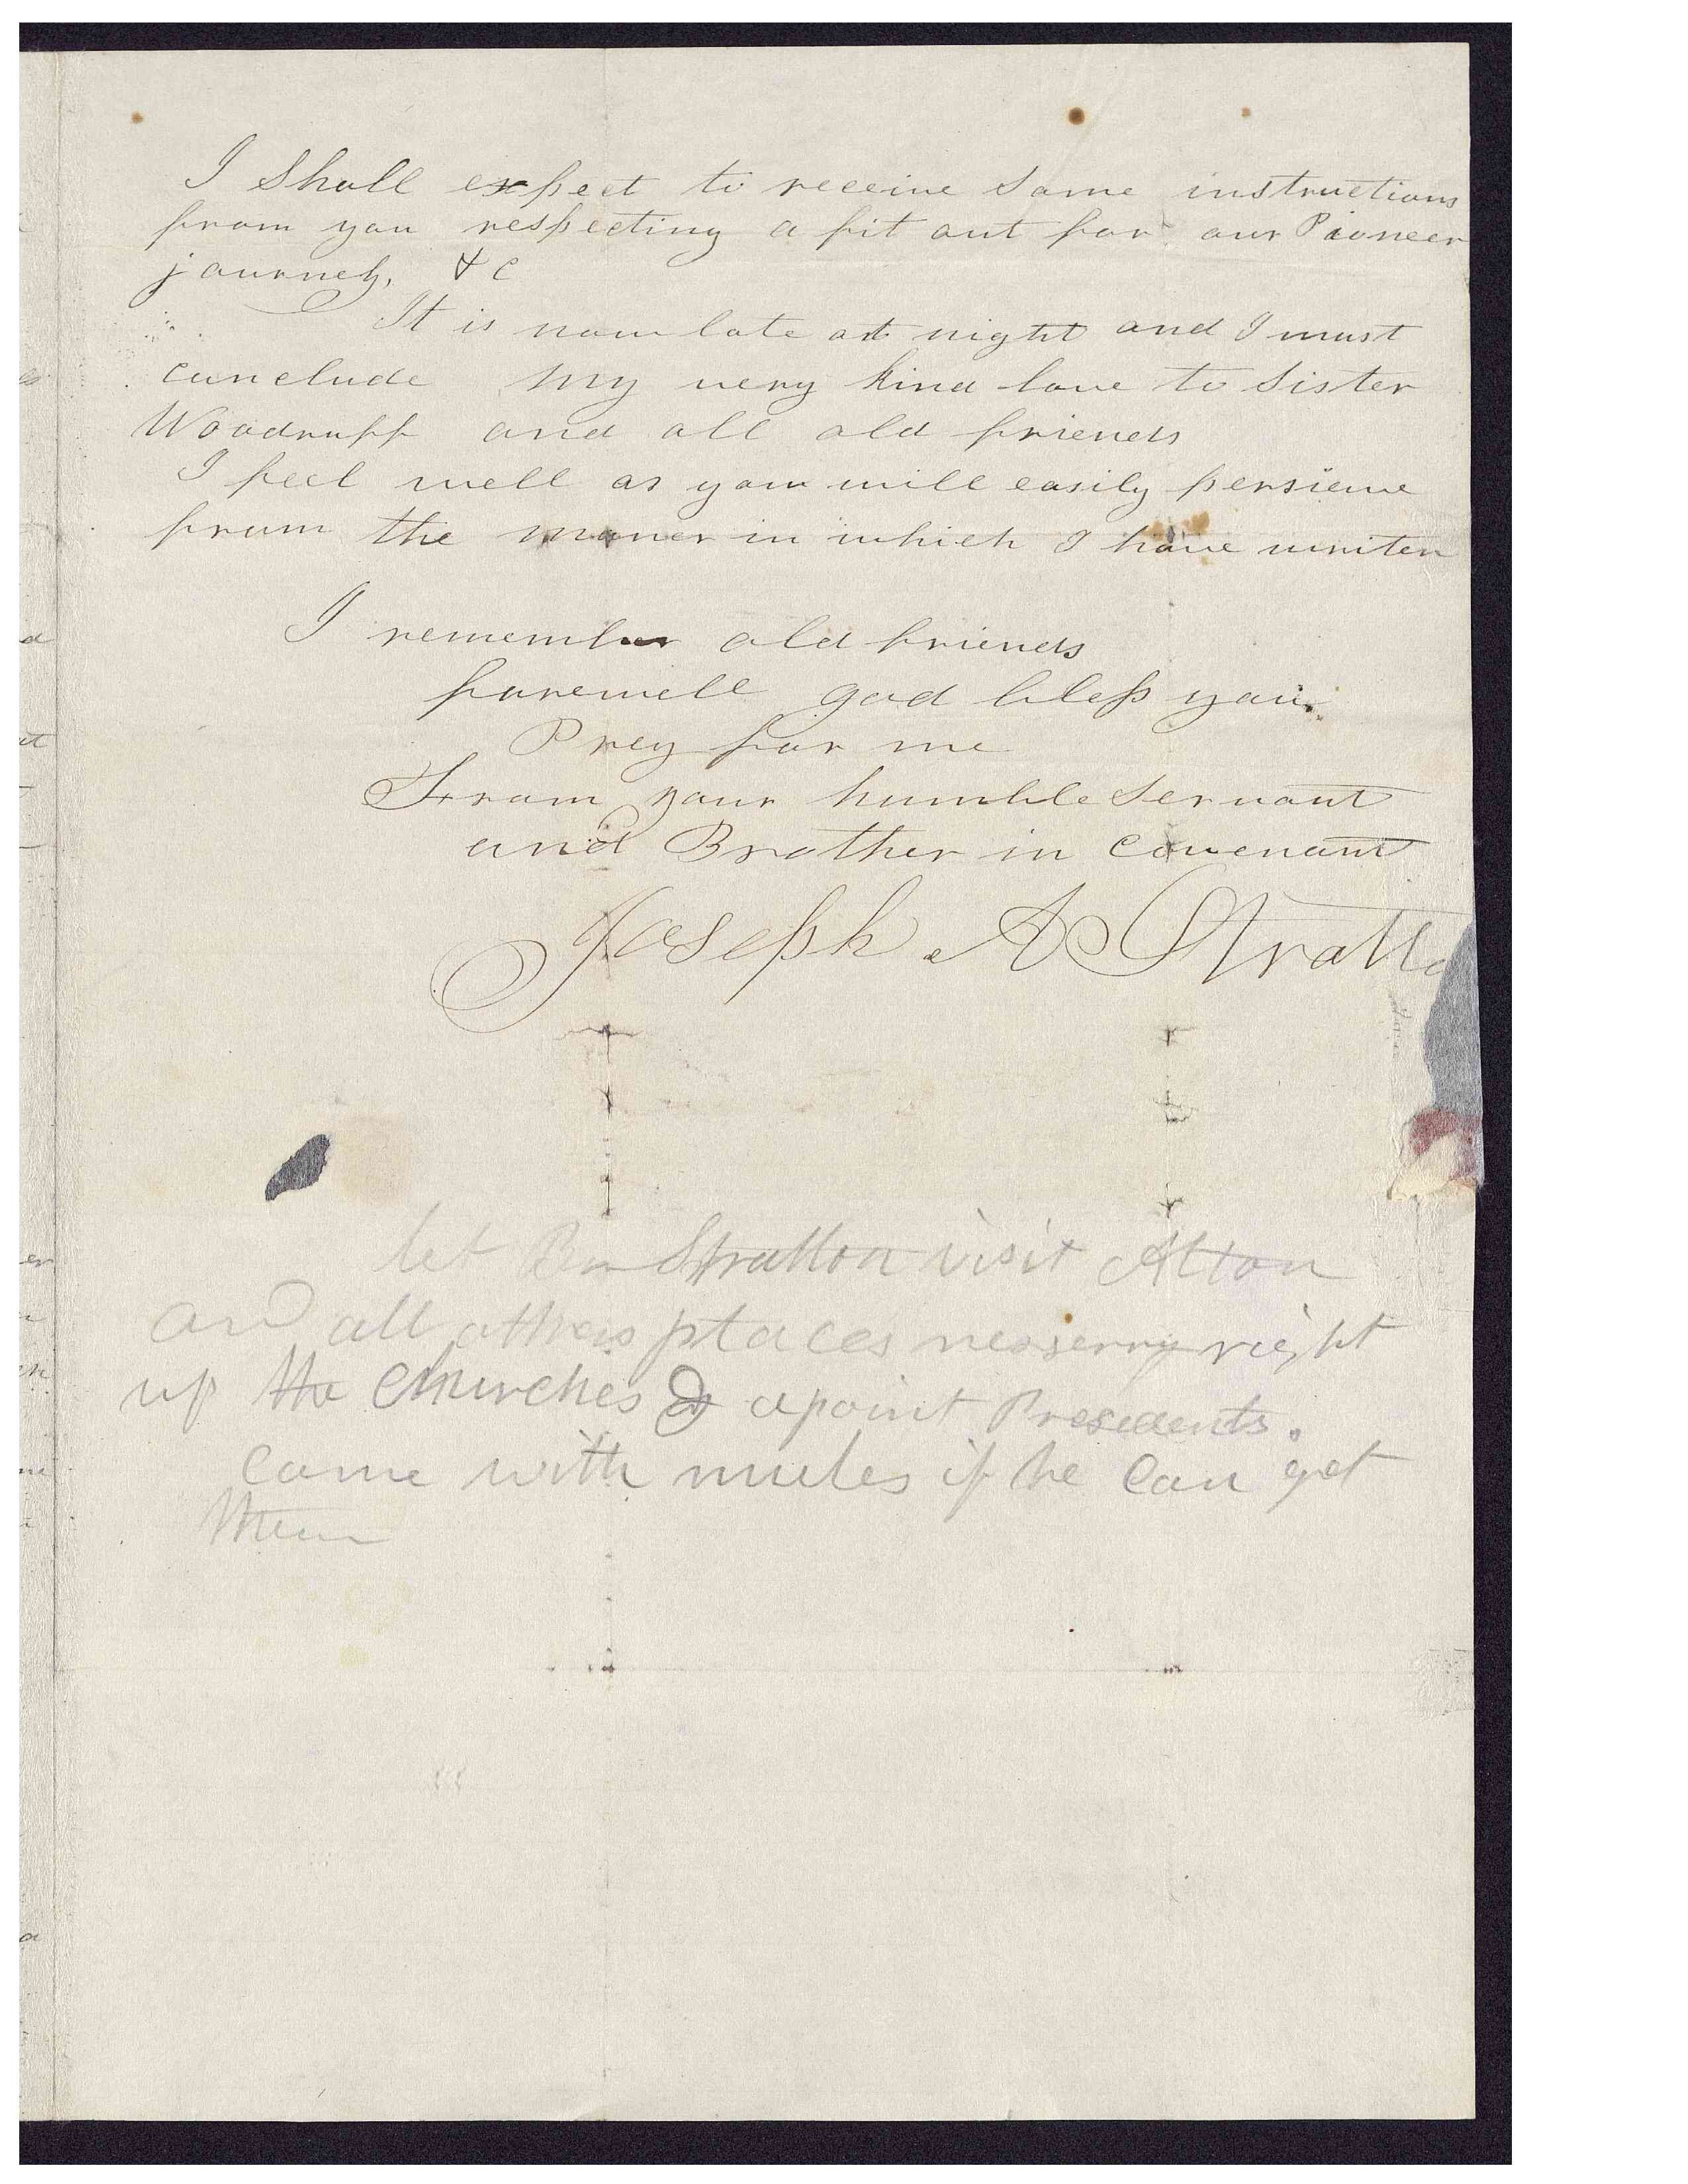 I Shall expect to receive some instructions
from you respecting a fit out for our Pioneer
journey, &c
It is now late at night and I must
conclude my very kind love to Sister
Woodruff and all old friends
I feel well as you will easily persieve
from the maner in which I have writen
I remember old friends
farewell god bless you
Prey for me
From your humble Servant
and Brother in Covenant
Joseph A Stratto
let Br Stratton visit Alton
and all others places nesserry right
up the Churches & apoint Presedents.
Come with mules if he can get
them